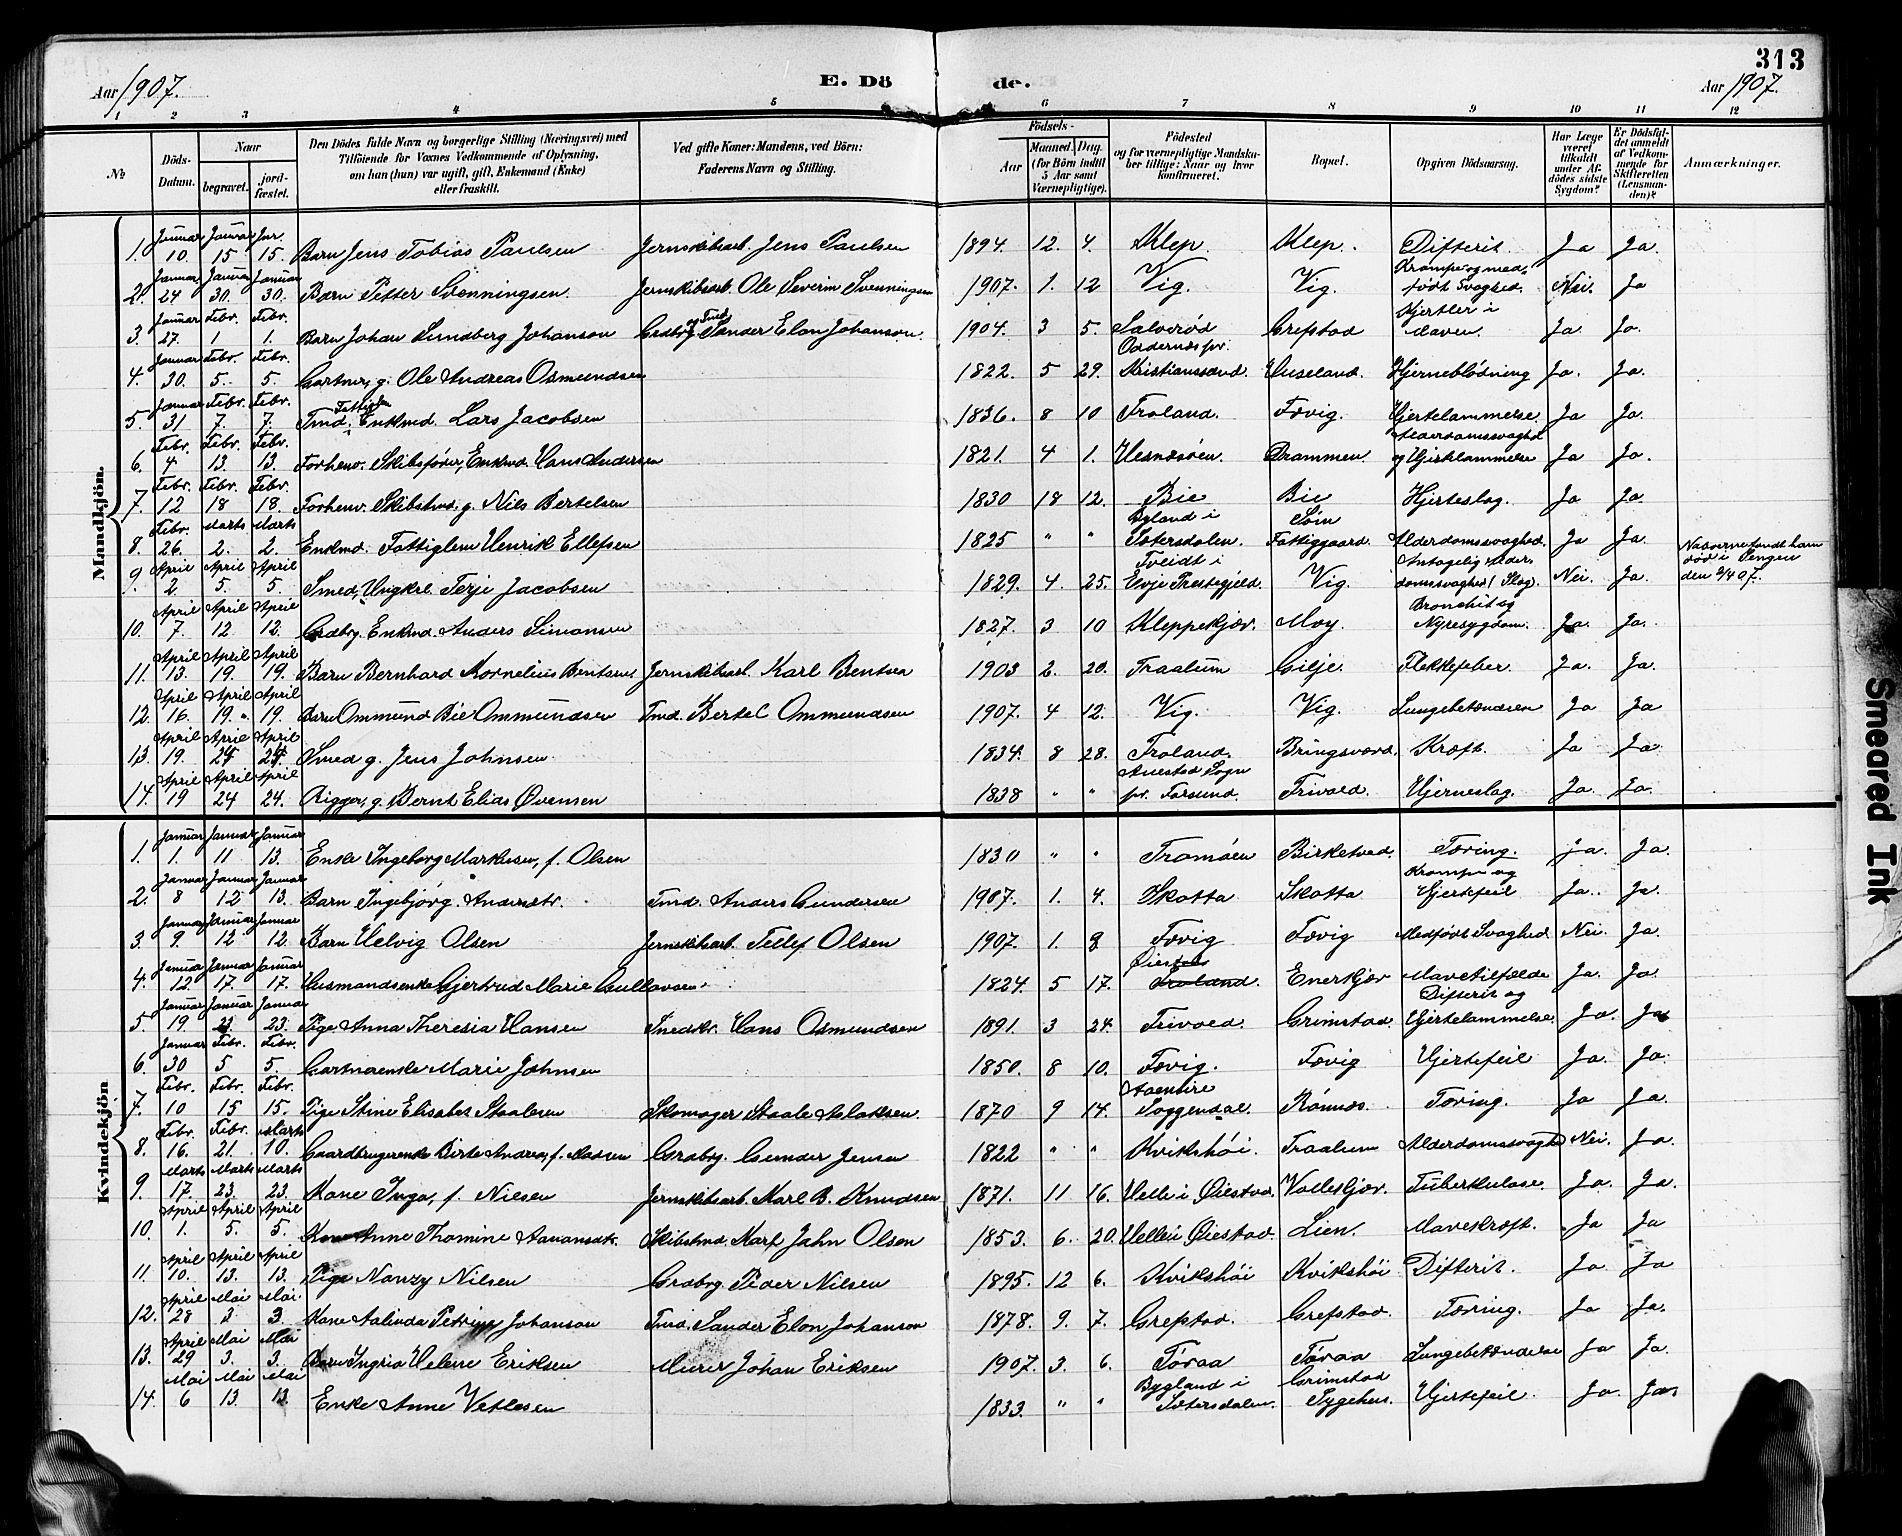 313
Aar 1907. E. Dö de. Aar 1907.
1 2 3 4 5 6 7 8 9 10 11 12
No
Döds-Datum.
Naar
begravet.
jord-fæstet.
Den Dödes fulde Navn og borgerlige Stilling (Næringsvei) med
Tilföiende for Voxnes Vedkommende af Oplysning,
om han (hun) var ugift, gift, Enkemand (Enke)
eller fraskilt.
Ved gifte Koner: Mandens, ved Börn:
Faderens Navn og Stilling.
Födsels-
Aar
Maaned. Dag.
(for Börn indtil
5 Aar samt
Værnepligtige).
Födested
og for værnepligtige Mandska-
ber tillige: Naar og hvor
konfirmeret.
Bopæl.
Opgiven Dödsaarsag.
Har Læge
været
tilkaldt
under Af-
dödes sidste
Sygdom?
Er Dödsfal-
det anmeldt
af Vedkom-
mende for
Skifteretten
(Lensman-
den)?
Anmærkninger.
Mandkjön.
1. Januar 10 Januar 15 Jnr. 15. Barn Jens Tobias Paulsen Jernskibsarb. Jens Paulsen 1894 12. 4. Klep. Klep. Difterit. Ja Ja.
2. Januar 24 Januar 30. Januar 30. Barn Petter Svenningsen. Jernskibsarb. Ole Severin Svenningsen 1907. 1. 12 Vig. Vig. Krampe og med-
født Svaghed. Nei. Ja
3. Januar 27. Febr. 1 Febr. 1. Barn Johan Lundberg Johanson Grdbrg. og Tmd Sander Elon Johanson. 1904. 3 5. Salverød Grefstad Kjertler i
Maven. Ja. Ja.
4. Januar 30. Febr. 5. Febr. 5. Gartner, g. Ole Andreas Osmundsen 1822. 5 29. Oddernæs pr.
Kristianssand. Huseland. Hjerneblödning Ja. Ja.
5. Januar 31 Febr. 7. Febr. 7. Tmd. Fattiglem Enkmd. Lars Jacobsen 1836. 8 10 Froland. Fævig. Hjertelammelse. Ja Ja.
6. Febr. 4 Febr. 13. Febr. 13. Forhenv. Skibsfører, Enkmd. Hans Andersen 1821. 4 1. Hesnæsøen. Drammen. Alderdomssvaghed
og Hjertelammelse Ja Ja.
7. Febr. 12 Febr. 18 Febr. 18. Forhenv. Skibstmd. g. Nils Bertelsen 1830 18 12. Bie Bie Hjerteslag. Ja Ja.
8. Febr. 26. Marts 2. Marts 2. Enkmd. Fattiglem Henrik Ellefsen 1825 " " Bygland i
Sætersdalen. Søm
Fattiggaard. Alderdomssvaghed. Ja Ja
9. April 2. April 5. April 5. Smed, Ungkrl. Terje Jacobsen 1829. 4. 25. Tveidt i
Evje Prestegjeld. Vig. Antagelig Alder-
domssvaghed / Slag. Nei. Ja. Naboerne fandt ham
død i Sengen
den 2/4 07.
10. April 7. April 12 April 12. Grdbrg. Enkmd. Anders Simonsen 1827. 3 10 Kleppekjær. Moy. Bronchit og
Nyresygdom. Ja. Ja.
11. April 13. April 19. April 19. Barn Bernhard Kornelius Bentsen, Jernskibsarb. Karl Bentsen 1903 2. 20. Traalum Gilje. Flekkefeber. Ja. Ja.
12. April 16. April 19. April 19. Barn Ommund Bie Ommundsen Tmd. Bertel Ommundsen 1907. 4 12. Vig. Vig. Lungebetændelsen Ja Ja
13. April 19. April 24 April 24. Smed g. Jens Johnsen 1834. 8 28. Froland. Bringsvord. Kræft. Ja Ja
14. April 19 April 24 April 24. Rigger, g. Bernt Elias Ovensen 1838 " " Sogn
pr. Farsund. Trivold. Hjerneslag. Ja. Ja.
Kvindekjön
1. Januar 1. Januar 11 Januar 13. Enke Ingeborg Markusen, f. Olsen 1830 " " Tromøen Birketved. Tæring. Ja. Ja.
2. Januar 8 Januar 12 Januar 13. Barn Ingebjörg Andersdtr. Tmd. Anders Gundersen 1907. 1. 4. Skotta Skotta Krampe og
Hjertefeil Ja. Ja.
3. Januar 9. Januar 12 Januar 12. Barn Helvig Olsen Jernskibsarb. Tellef Olsen 1907. 1. 8 Fævig Fævig Medfødt Svaghed Nei. Ja.
4. Januar 12. Januar 17. Januar 17. Husmandsenke Gjertrud Marie Gullovsen. 1824. 5 17. Øiestad
Froland. Enerkjær Mavetilfælde Ja. Ja.
5. Januar 19. Januar 23. Januar 23. Pige Anna Theresia Hansen Snedkr. Hans Osmundsen 1891. 3 24. Trivold. Grimstad. Difterit og
Hjertelammelse. Ja. Ja.
6. Januar 30 Febr. 5 Febr. 5. Gartnerenke Marie Johnsen 1850. 8 10. Fævig. Fævig Hjertefeil Ja. Ja.
7. Febr. 10 Febr. 15 Febr. 15. Pige Stine Elisabet Staalesen Skomager Staale Aslaksen. 1870 9 14. Aaensire
Soggendal. Rönnes. Tæring. Ja Ja.
8. Febr. 16. Febr. 21. Marts 10. Gaardbrugerenke Birte Andrea, f. Madsen Grdbrg. Gunder Jensen 1822 " " Kvikshöi. Traalum Alderdomssvaghed Nei. Ja.
9. Marts 17. Marts 23. Marts 23. Kone Inga, f. Nilsen Jernskibsarb. Karl B. Knudsen 1871. 11 16. Helle i Øiestad. Vallekjær. Tuberkulose. Ja. Ja.
10. April 1. April 5. April 5. Kone Anne Thomine Aanonsdtr. Skibstmd. Karl Jahn Olsen 1853. 6. 20. Helle i Øiestad Lien. Mavekræft. Ja Ja
11. April 10. April 13. April 13. Pige Nanzy Nilsen Grdbrg. Peder Nilsen 1895. 12 6. Kvikshöi Kvikshöi Difterit. Ja Ja
12. April 28 Mai 3 Mai 3. Kone Aalinda Petrine Johanson Tmd. Sander Elon Johanson 1878. 9. 7. Grefstad. Grefstad. Tæring. Ja Ja.
13. April 29 Mai 3. Mai 3. Barn Ingrid Helene Eriksen Murer Johan Eriksen 1907. 3. 6. Töraa Töraa Lungebetændelse Ja Ja.
14. Mai 6 Mai 13. Mai 13. Enke Anne Vetlesen 1833. " " Bygland i
Sætersdalen. Grimstad
Sygehus. Hjertefeil. Ja. Ja.
Smeared Ink